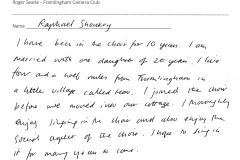 Roger Searle - Framlingham Camera Club
Name
I have been in the choir for 10 years. I am
married with one daughter of 20 years. I live
four and a half miles from Framlingham in
a little village called I joined the choir
before we moved into our cottage. I thoroughly
enjoy singing in the choir and also enjoy the
social aspect of the choir. I hope to sing in
it for many years to come.